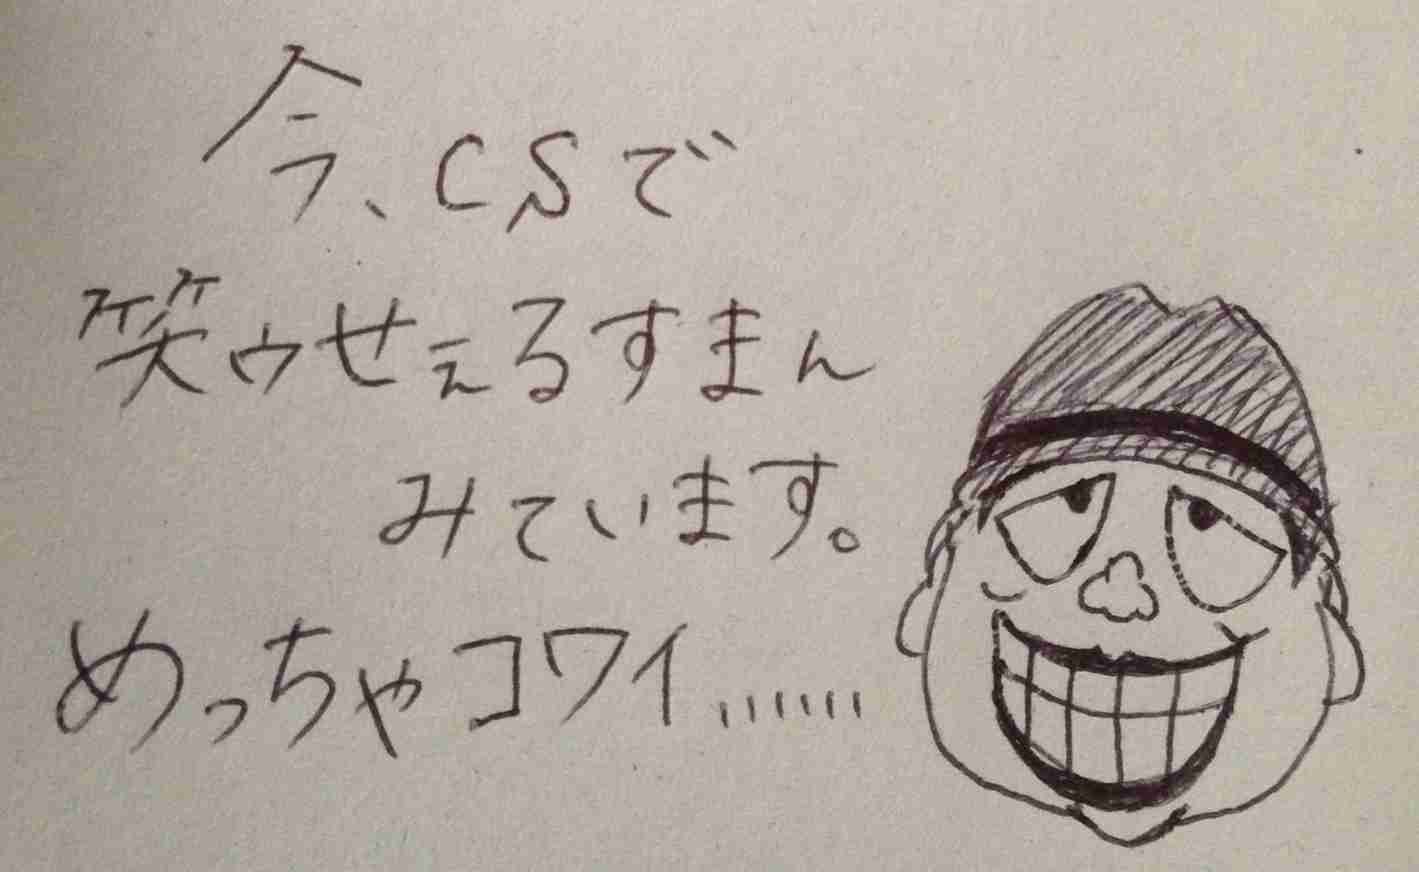 今、CSで
笑ゥせぇるすまん
みています。
めっちゃコワイ......